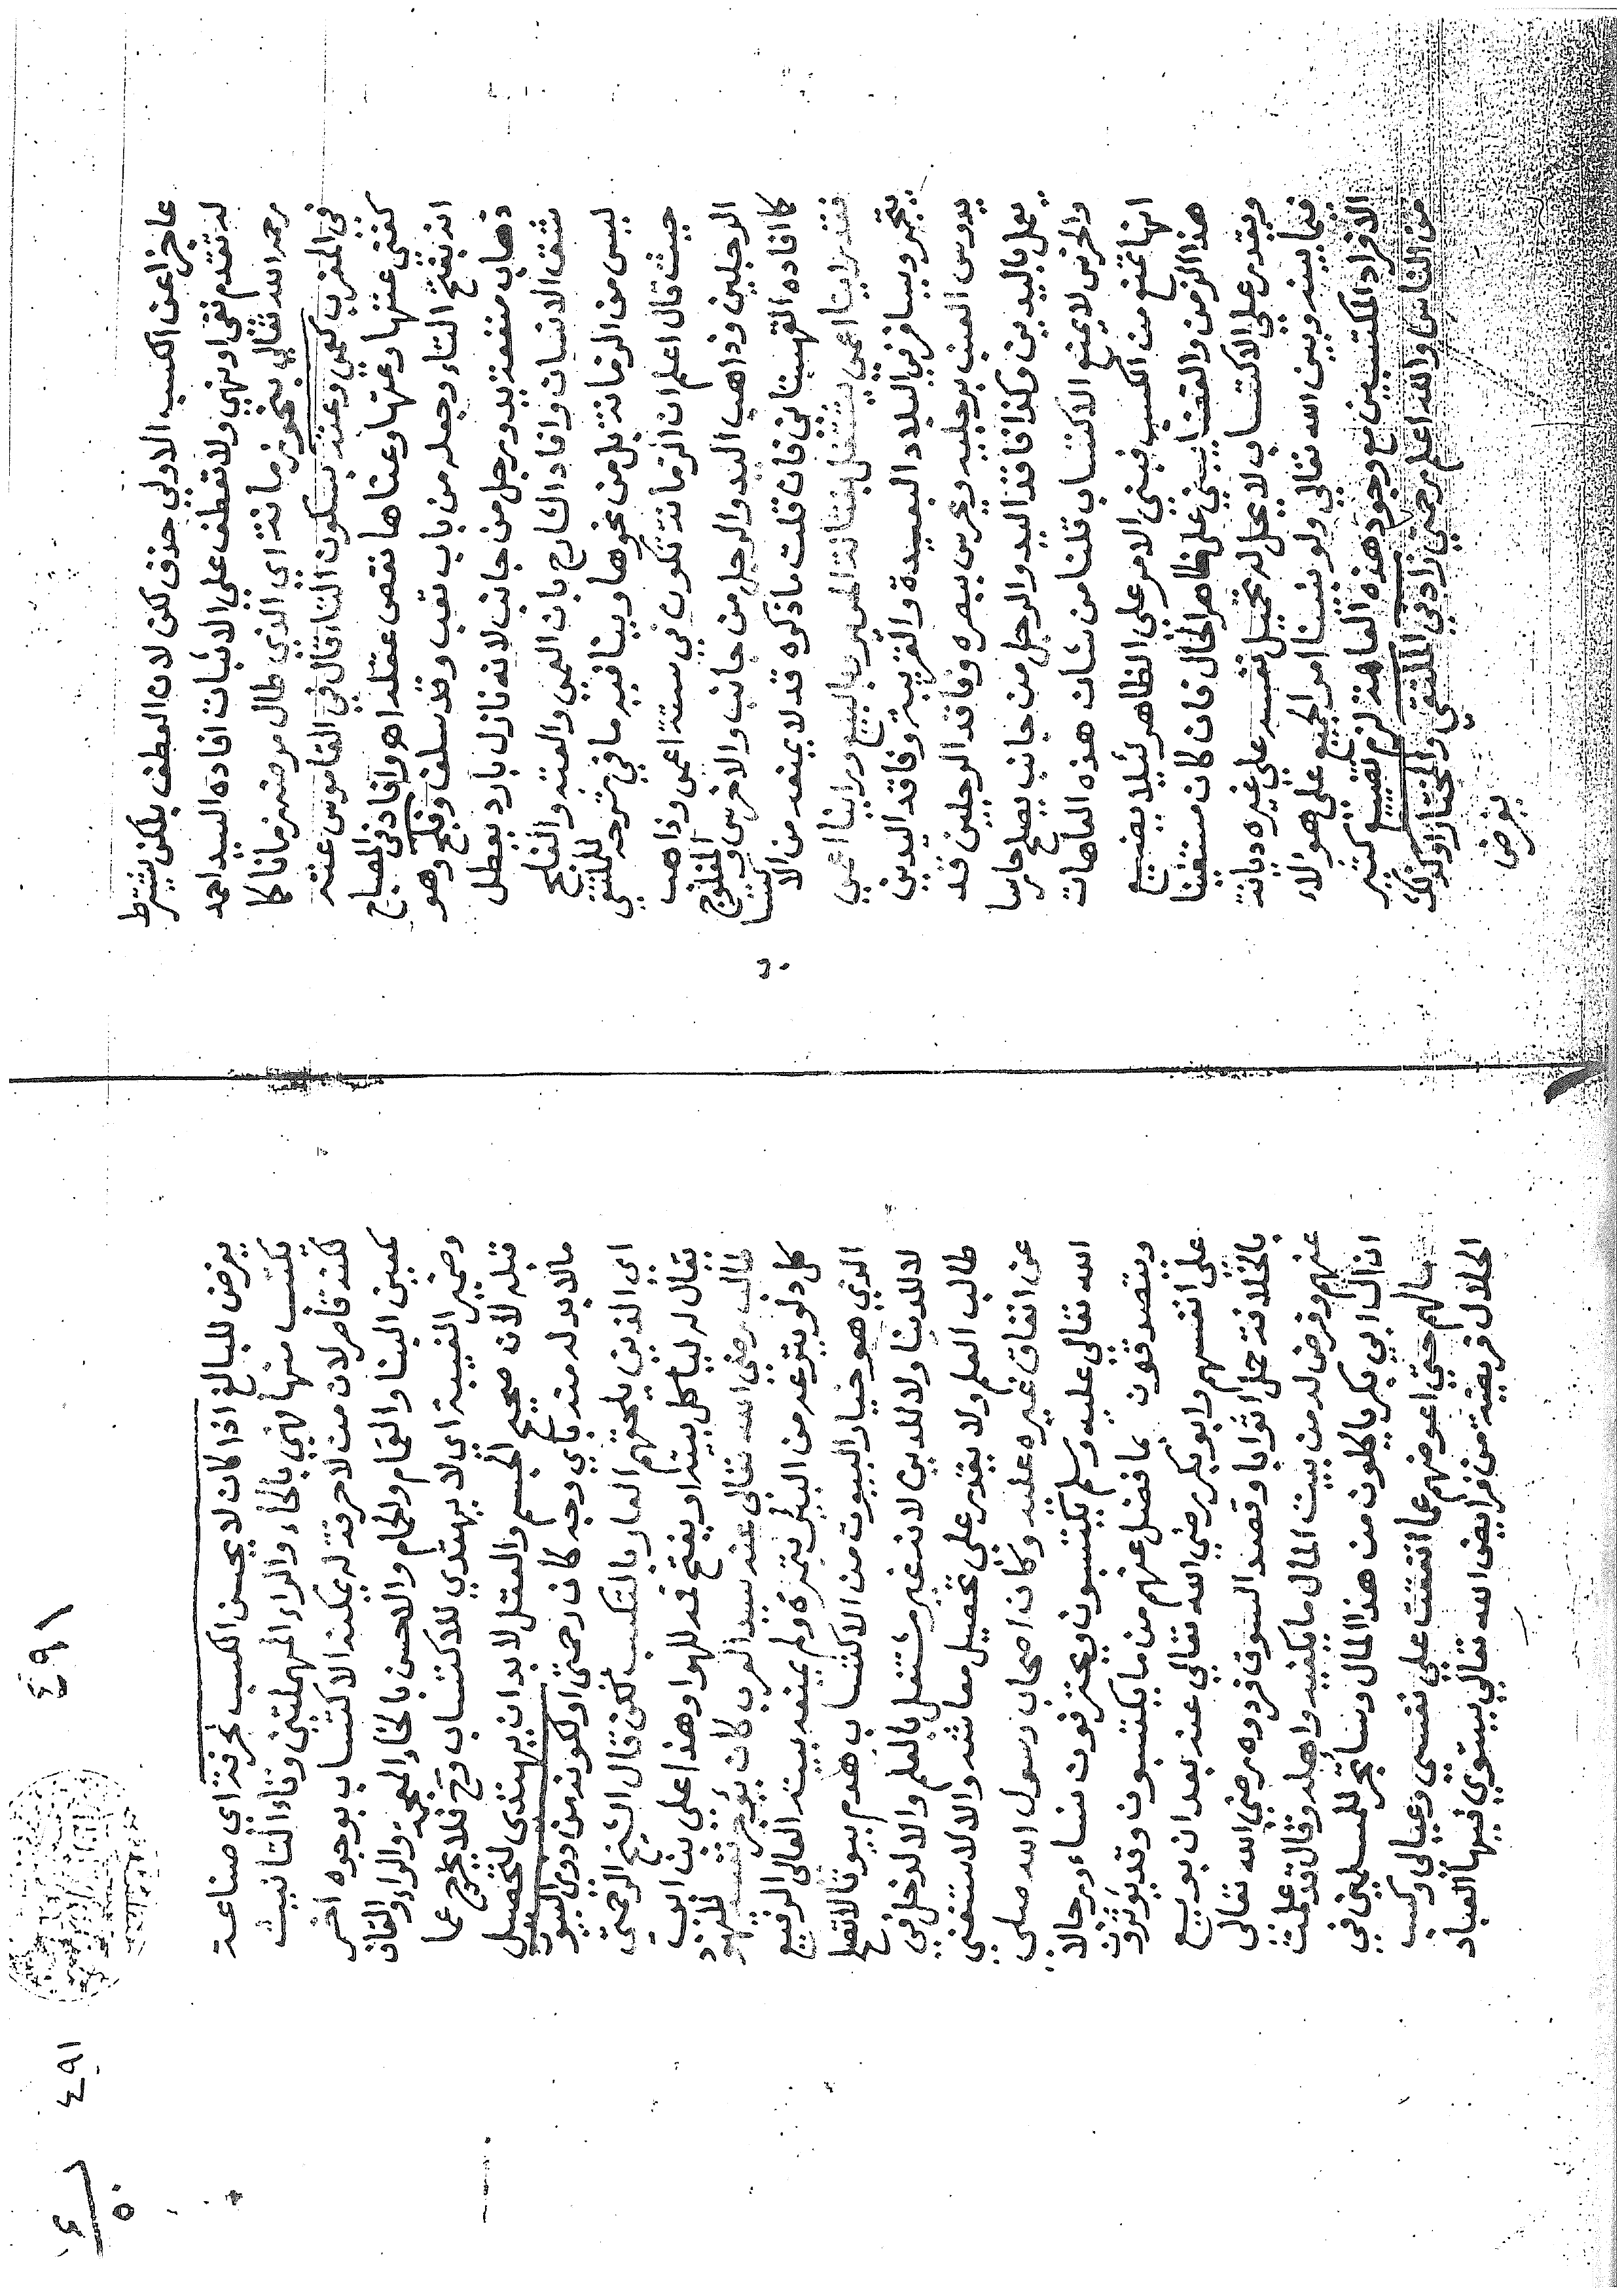 عاجزا عن الكسب الاولي حذف لكن لان العطف بلكن يشترط
له تقدم نفي او نهي ولا تعطف على الاثبات افاده السيد احمد
رحمه الله تعالى بنحو زمانة اي الذي طال مرضه زمانا كما
في المغرب كعمى وعته بسكون التاء قال في القاموس عته
كعنى عتها وعتها وعتاها نقص عقله اهـ وافاد في المصباح
انه بفتح التاء وجعله من باب تعب وقد سلف وفلج وهو
ذهاب منفعة يد ورجل من جانب لانه نازل بارد يعطل
شق الانسان وافاد الشارح بان العمى والعته والفلج
ليس من الزمانة بل من نحوها وينافيه ما في شرحه للملتقى
حيث قال اعلم ان الزمانة تكون في ستة اعمى وذاهب
الرجلين وذاهب اليد والرجل من جانب والاخرس والمفلوج
كما افاده القهستاني فان قلت ما ذكره قد لا يمنعه من الاكتساب
فقد راينا اعمى يشتغل بشانه المبرور بالبيع وراينا اعمى
يتجر ويسافر في البلاد البعيدة والقريبة وفاقد اليدين
يدوس العنب برجليه ويحرس ببصره وفاقد الرجلين قد
يعمل باليدين وكذا فاقد اليد والرجل من جانب يصلح حارسا
والخرس لا يمنع الاكتساب قلنا من شان هذه العاهات
انها تمنع من الكسب فبني الامر على الظاهر لئلا يضيع
هذا الزمن والقضا يبني على ظاهر الحال فان كان مستغنيا
ويقدر على الاكتساب لا يحل له تحميل نفسه على غيره ديانة
فيما بينه وبين الله تعالى ولو بنينا امر الجميع على هولاء
الافراد المكتسبين مع وجود هذه العاهة لزم تضييع كثير
من الناس والله اعلم رحمتي زاد في الملتقى والمختار وكذلك
يفرض
١٩٤
١٩٤
يفرض للبالغ اذا كان لا يحسن الكسب لحرفة اي صناعة
يكتسب منها فهي بالحاء والراء المهملتين وتاء التانيث
لكنه قاصر لان من لا حرفة له يمكنه الاكتساب بوجوه اخر
كمعين البنا والفحام والحمام والاحسن بالخاء المعجمة والراء والقاف
وضمير الغيبة اي لا يهتدي للاكتساب وح فلا يخرج عما
قبله لان صحيح الجسم والعقل لا بد ان يهتدى لتحصيل
ما لا بد له منه باي وجه كان رحمتي او لكونه من ذوي البيوت
اي الذين يلحقهم العار بالتكسب لكن قال الشيخ الرحمتي
يقال له لباكل بيتر او يفتح فمه للهوا وهذا علي بن ابي
طالب رضي الله تعالى عنه سيد العرب كان يؤجر نفسه لليهود
كل دلو ينزعه من البئر بتمرة ولم يمنعه بيته العالي الرفيع
الذي هو خيار البيوت من الاكتساب هدم بيوتا لا تصلح
لا للدنيا ولا للدين لانه غير مشتغل بالعلم والا لدخل في
طالب العلم ولا يقدر على تحصيل معاشه والا لاستغنى
عن انفاق غيره عليه وكان اصحاب رسول الله صلى
الله تعالى عليه وسلم يكتسبون ويحترفون نساء ورجالا
ويتصدقون بما فضل عنهم من ما يكتسبون وقد يؤثرون
على انفسهم وابو بكر رضي الله تعالى عنه بعد ان بويع
بالخلافة حمل اثوابا وقصد السوق فرده رضي الله تعالى
عنهم وفرض له من بيت المال ما يكفيه واهله وقال قد علمت
ان ال ابي بكر ياكلون من هذا المال وساتجر للمسلمين في
مالهم حتى اعوضهم عما انفقت على نفسي وعيالي وكسب
الحلال فريضة من فرايض الله تعالى يستوي فيها العباد